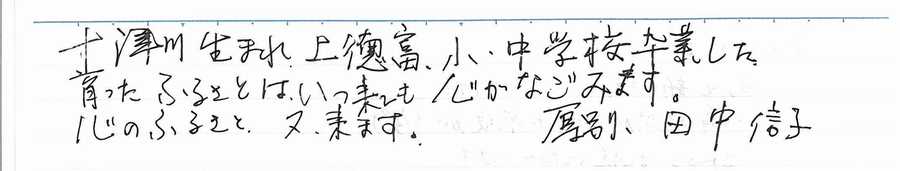 十津川生まれ、上徳富、小、中学校卒業した
育ったふるさとは、いつ来ても心がなごみます。
心のふるさと、又、来ます。 厚別、田中信子